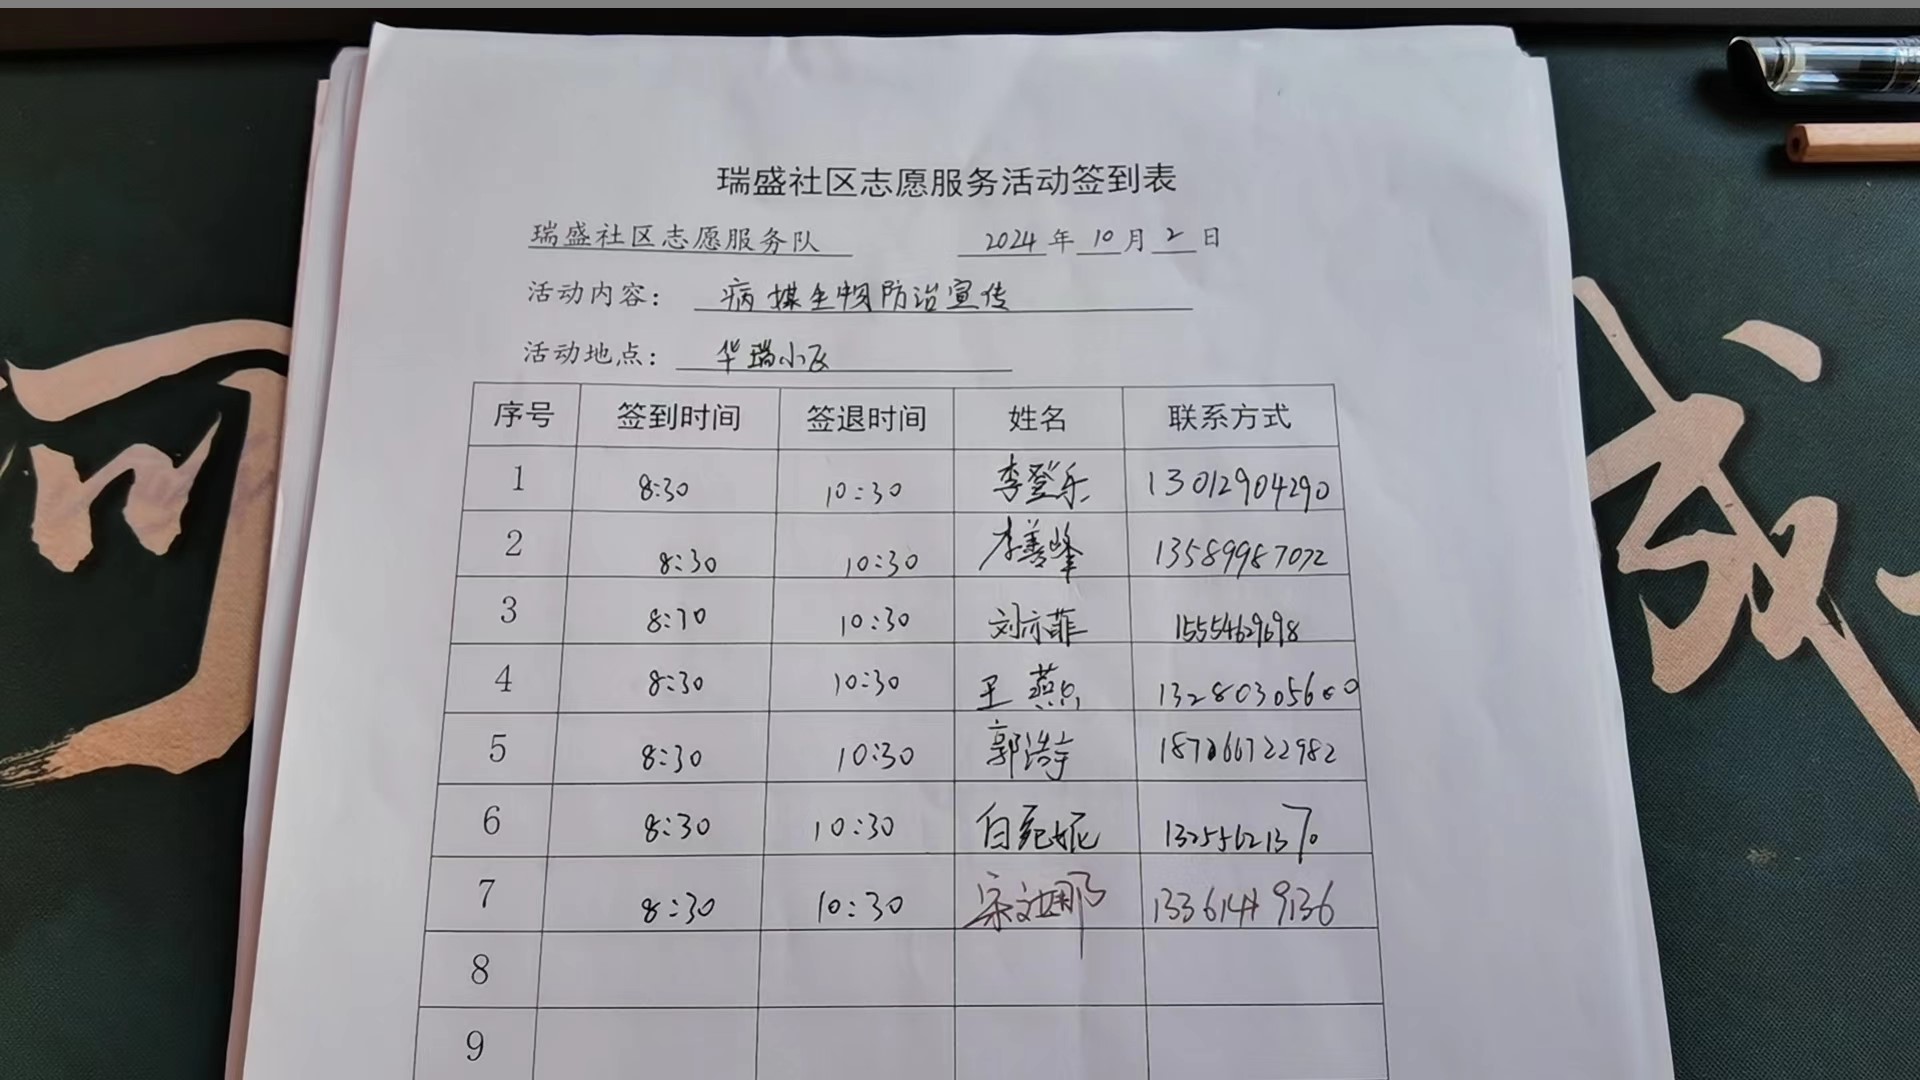 瑞盛社区志愿服务活动签到表
瑞盛社区志愿服务队 2024 年 10 月 2 日
活动内容： 病媒生物防治宣传
活动地点： 华瑞小区
序号 签到时间 签退时间 姓名 联系方式
1 8:30 10:30 李登乐 13012904290
2 8:30 10:30 李善峰 13589987072
3 8:30 10:30 刘亦菲 15554629698
4 8:30 10:30 王燕 13280305600
5 8:30 10:30 郭浩宇 18766722982
6 8:30 10:30 白宛妮 13255621370
7 8:30 10:30 宋文娜
8
9